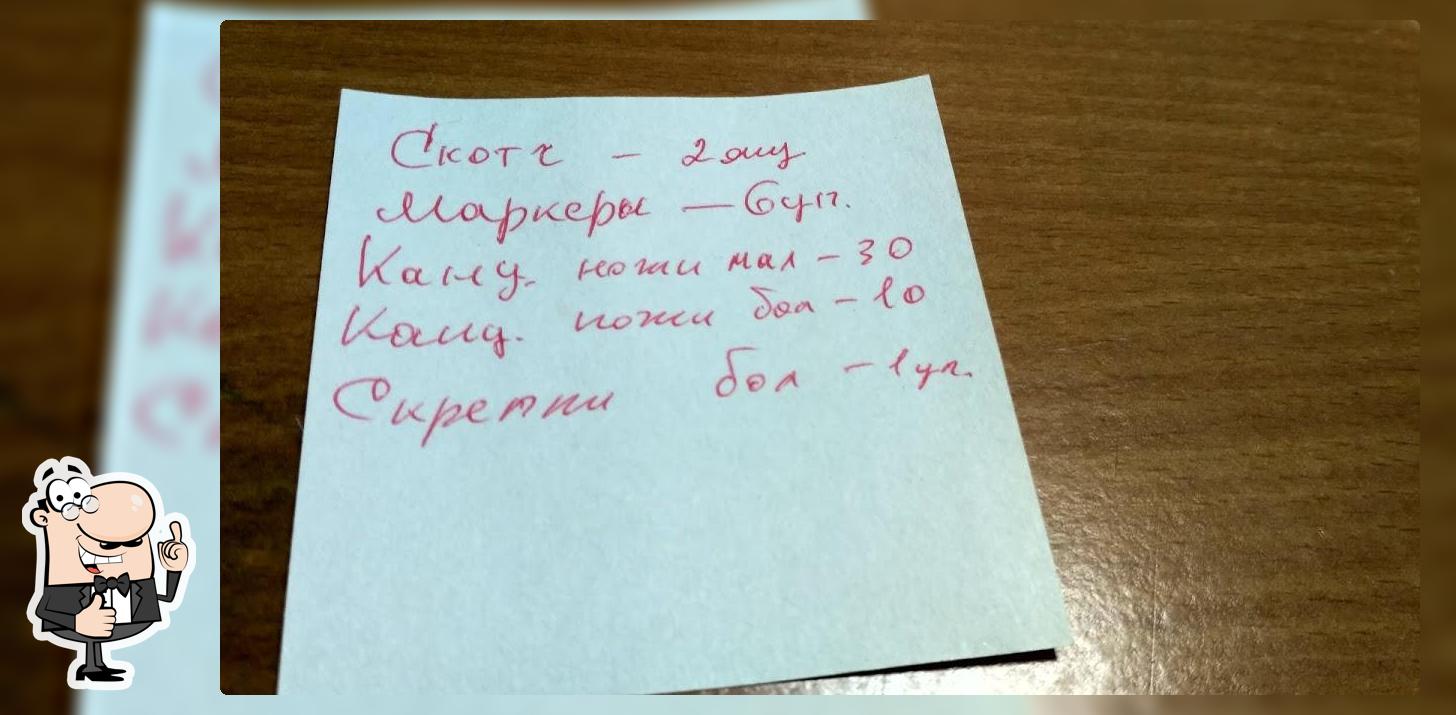 Скотч - 2 ящ
Маркеры - 6 уп.
Канц. ножи мал - 30
Канц. ножи бол - 10
Скрепки бол - 1 уп.